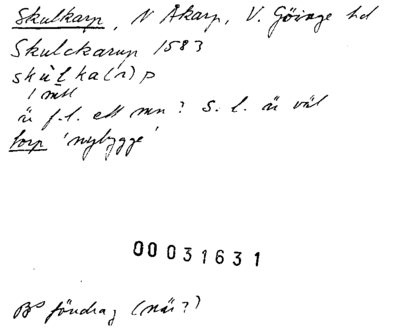 Skulkarp, N Åkarp, V. Göinge hd
Skulckarup 1583
skùlka(r)p
1 mtl
är f.l. ett mn? S. l. är väl
torp 'nybygge'
00031631
föredrag (när?)